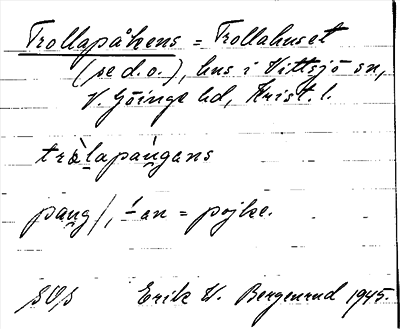 Trollapåkens = Trollahuset
(se d.o.), hus i Vittsjö sn,
V. Göinge hd, Krist. l.
tròlapaṅgans
pang/, ∸an = pojke.
Erik W. Bergenrud 1945.